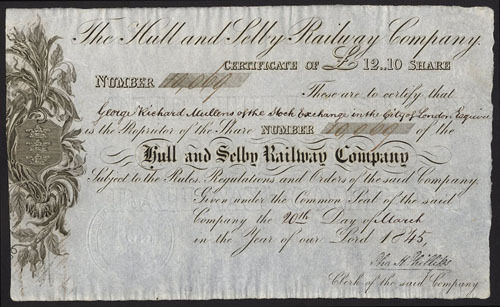 The Hull and Selby Railway Company.
CERTIFICATE OF £12..10 SHARE
NUMBER 10,069
These are to certify that
George Richard Mullens of the Stock Exchange in the City of London Esquire
is the Proprietor of the Share NUMBER 10,069 of the
Hull and Selby Railway Company
Subject to the Rules, Regulations and Orders of the said Company.
Given under the Common Seal of the said
Company the 20th Day of March
in the Year of our Lord 1845,
Clerk of the said Company